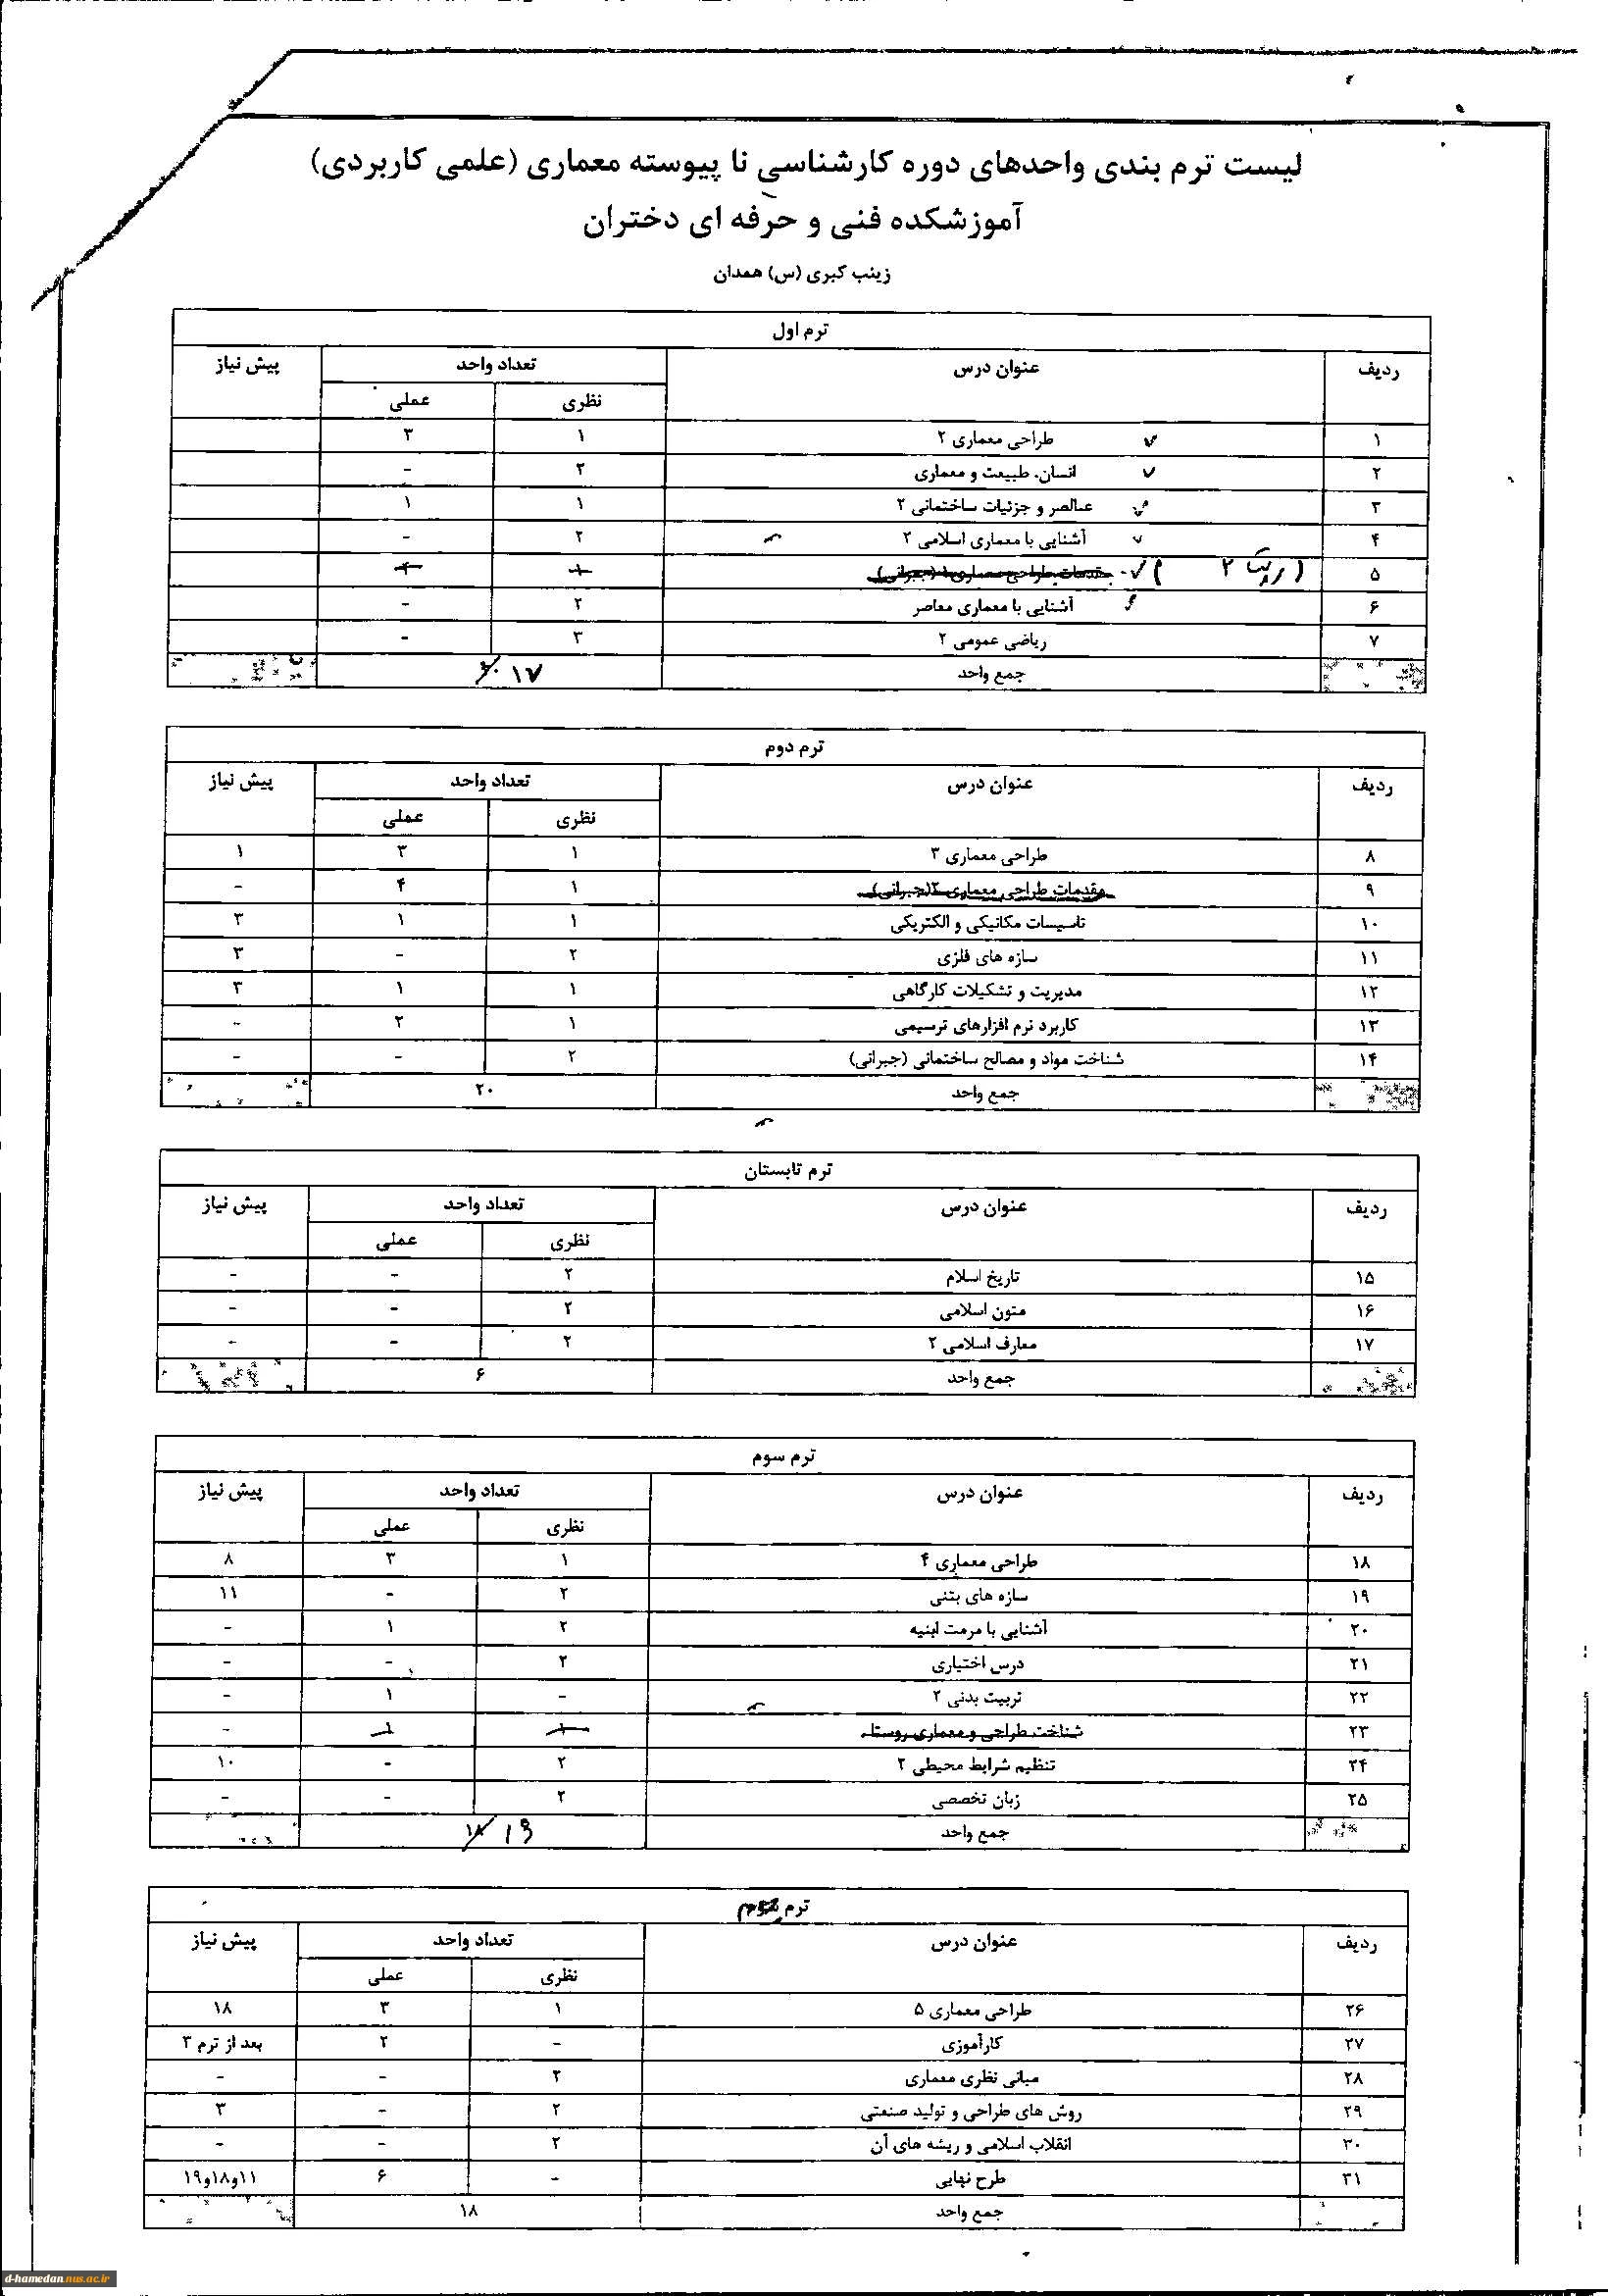 لیست ترم بندی واحدهای دوره کارشناسی نا پیوسته معماری (علمی کاربردی)
آموزشکده فنی و حرفه ای دختران
زینب کبری (س) همدان
ترم اول
ردیف عنوان درس تعداد واحد پیش نیاز
نظری عملی
۱ طراحی معماری ۲ ۱ ۳
۲ انسان، طبیعت و معماری ۲ -
۳ عناصر و جزئیات ساختمانی ۲ ۱ ۱
۴ آشنایی با معماری اسلامی ۲ ۲ -
۵ مقدمات طراحی معماری ۱ (جبرانی)
۶ آشنایی با معماری معاصر ۲ -
۷ ریاضی عمومی ۲ ۳ -
جمع واحد ۱۷
ترم دوم
ردیف عنوان درس تعداد واحد پیش نیاز
نظری عملی
۸ طراحی معماری ۳ ۱ ۳ ۱
۹ مقدمات طراحی معماری ۲ (جبرانی) ۱ ۴ -
۱۰ تاسیسات مکانیکی و الکتریکی ۱ ۱ ۳
۱۱ سازه های فلزی ۲ - ۳
۱۲ مدیریت و تشکیلات کارگاهی ۱ ۱ ۳
۱۳ کاربرد نرم افزارهای ترسیمی ۱ ۲ -
۱۴ شناخت مواد و مصالح ساختمانی (جبرانی) ۲ - -
جمع واحد ۲۰
ترم تابستان
ردیف عنوان درس تعداد واحد پیش نیاز
نظری عملی
۱۵ تاریخ اسلام ۲ - -
۱۶ متون اسلامی ۲ - -
۱۷ معارف اسلامی ۲ ۲ - -
جمع واحد ۶
ترم سوم
ردیف عنوان درس تعداد واحد پیش نیاز
نظری عملی
۱۸ طراحی معماری ۴ ۱ ۳ ۸
۱۹ سازه های بتنی ۲ - ۱۱
۲۰ آشنایی با مرمت ابنیه ۲ ۱ -
۲۱ درس اختیاری ۲ - -
۲۲ تربیت بدنی ۲ - ۱ -
۲۳ شناخت طراحی و معماری روستا ۱ ۱ -
۲۴ تنظیم شرایط محیطی ۲ ۲ - ۱۰
۲۵ زبان تخصصی ۲ - -
جمع واحد ۱۸ ۱۶
ترم
ردیف عنوان درس تعداد واحد پیش نیاز
نظری عملی
۲۶ طراحی معماری ۵ ۱ ۳ ۱۸
۲۷ کارآموزی - ۲ بعد از ترم ۳
۲۸ مبانی نظری معماری ۲ - -
۲۹ روش های طراحی و تولید صنعتی ۲ - ۳
۳۰ انقلاب اسلامی و ریشه های آن ۲ - -
۳۱ طرح نهایی - ۶ ۱۱و۱۸و۱۹
جمع واحد ۱۸
d-hamedan.nus.ac.ir